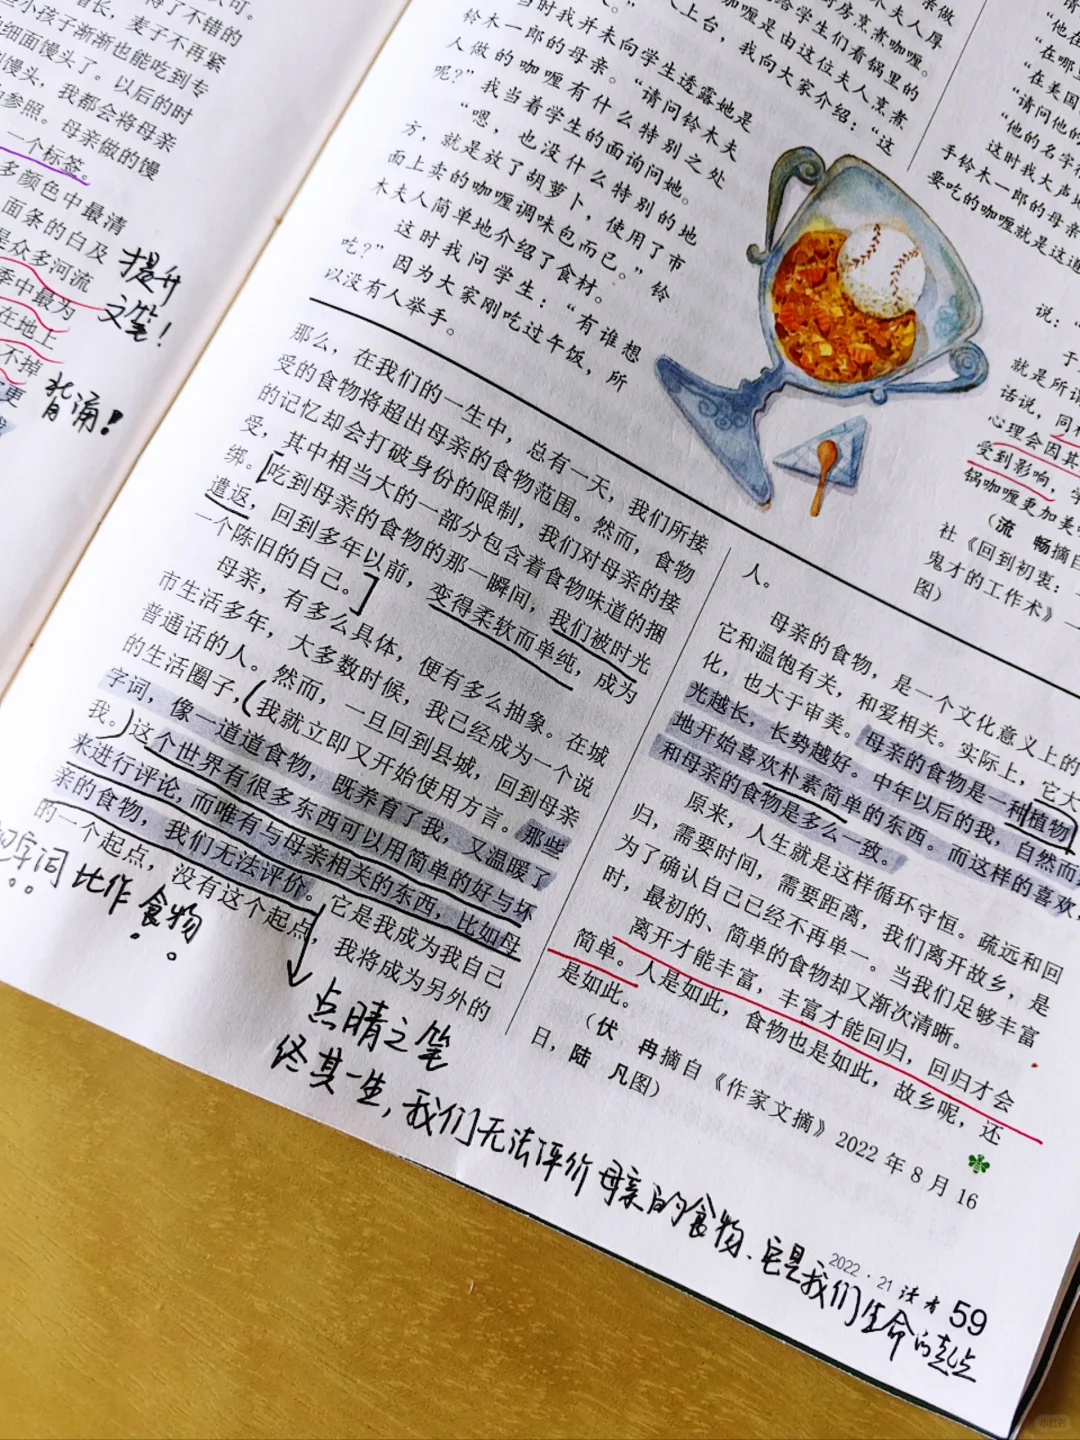 了不错的
增长，麦子不再紧
小孩子渐渐也能吃到专
细面馒头了。以后的时
馒头，我都会将母亲
参照。母亲做的馒
一个标签。
多颜色中最清
面条的白及
是众多河流
季中最为
在地上
不掉
更
提升
文笔！
背诵！
当时我并未向学生透露她是
铃木一郎的母亲。“请问铃木夫
人做的咖喱有什么特别之处
呢？”我当着学生的面询问她。
“嗯，也没什么特别的地
方，就是放了胡萝卜，使用了市
面上卖的咖喱调味包而已。”铃
木夫人简单地介绍了食材。
这时我问学生：“有谁想
吃？”因为大家刚吃过午饭，所
以没有人举手。
房烹煮咖喱。
给学生们看锅里的
咖喱是由这位夫人烹煮
上台，我向大家介绍：“这
“他在
“在哪里
“在美国
“请问他的
“他的名字
这时我大声地
手铃木一郎的母亲
要吃的咖喱就是这道
说：“
于
就是所谓
话说，同样
心理会因其
受到影响，学
锅咖喱更加美
（流　畅摘自
社《回到初衷：
鬼才的工作术》一
图）
那么，在我们的一生中，总有一天，我们所接
受的食物将超出母亲的食物范围。然而，食物
的记忆却会打破身份的限制，我们对母亲的接
受，其中相当大的一部分包含着食物味道的捆
绑。吃到母亲的食物的那一瞬间，我们被时光
遣返，回到多年以前，变得柔软而单纯，成为
一个陈旧的自己。
母亲，有多么具体，便有多么抽象。在城
市生活多年，大多数时候，我已经成为一个说
普通话的人。然而，一旦回到县城，回到母亲
的生活圈子，我就立即又开始使用方言。那些
字词，像一道道食物，既养育了我，又温暖了
我。这个世界有很多东西可以用简单的好与坏
来进行评论，而唯有与母亲相关的东西，比如母
亲的食物，我们无法评价。它是我成为我自己
的一个起点，没有这个起点，我将成为另外的
人。
母亲的食物，是一个文化意义上的
它和温饱有关，和爱相关。实际上，它大
化，也大于审美。母亲的食物是一种植物
光越长，长势越好。中年以后的我，自然而
地开始喜欢朴素简单的东西。而这样的喜欢，
和母亲的食物是多么一致。
原来，人生就是这样循环守恒。疏远和回
归，需要时间，需要距离，我们离开故乡，是
为了确认自己已经不再单一。当我们足够丰富
时，最初的、简单的食物却又渐次清晰。
离开才能丰富，丰富才能回归，回归才会
简单。人是如此，食物也是如此，故乡呢，还
是如此。
（伏　冉摘自《作家文摘》2022年8月16
日，陆　凡图）
字词比作食物
点睛之笔
终其一生，我们无法评价母亲的食物、它是我们生命的起点
2022·21 读者 59
小红书